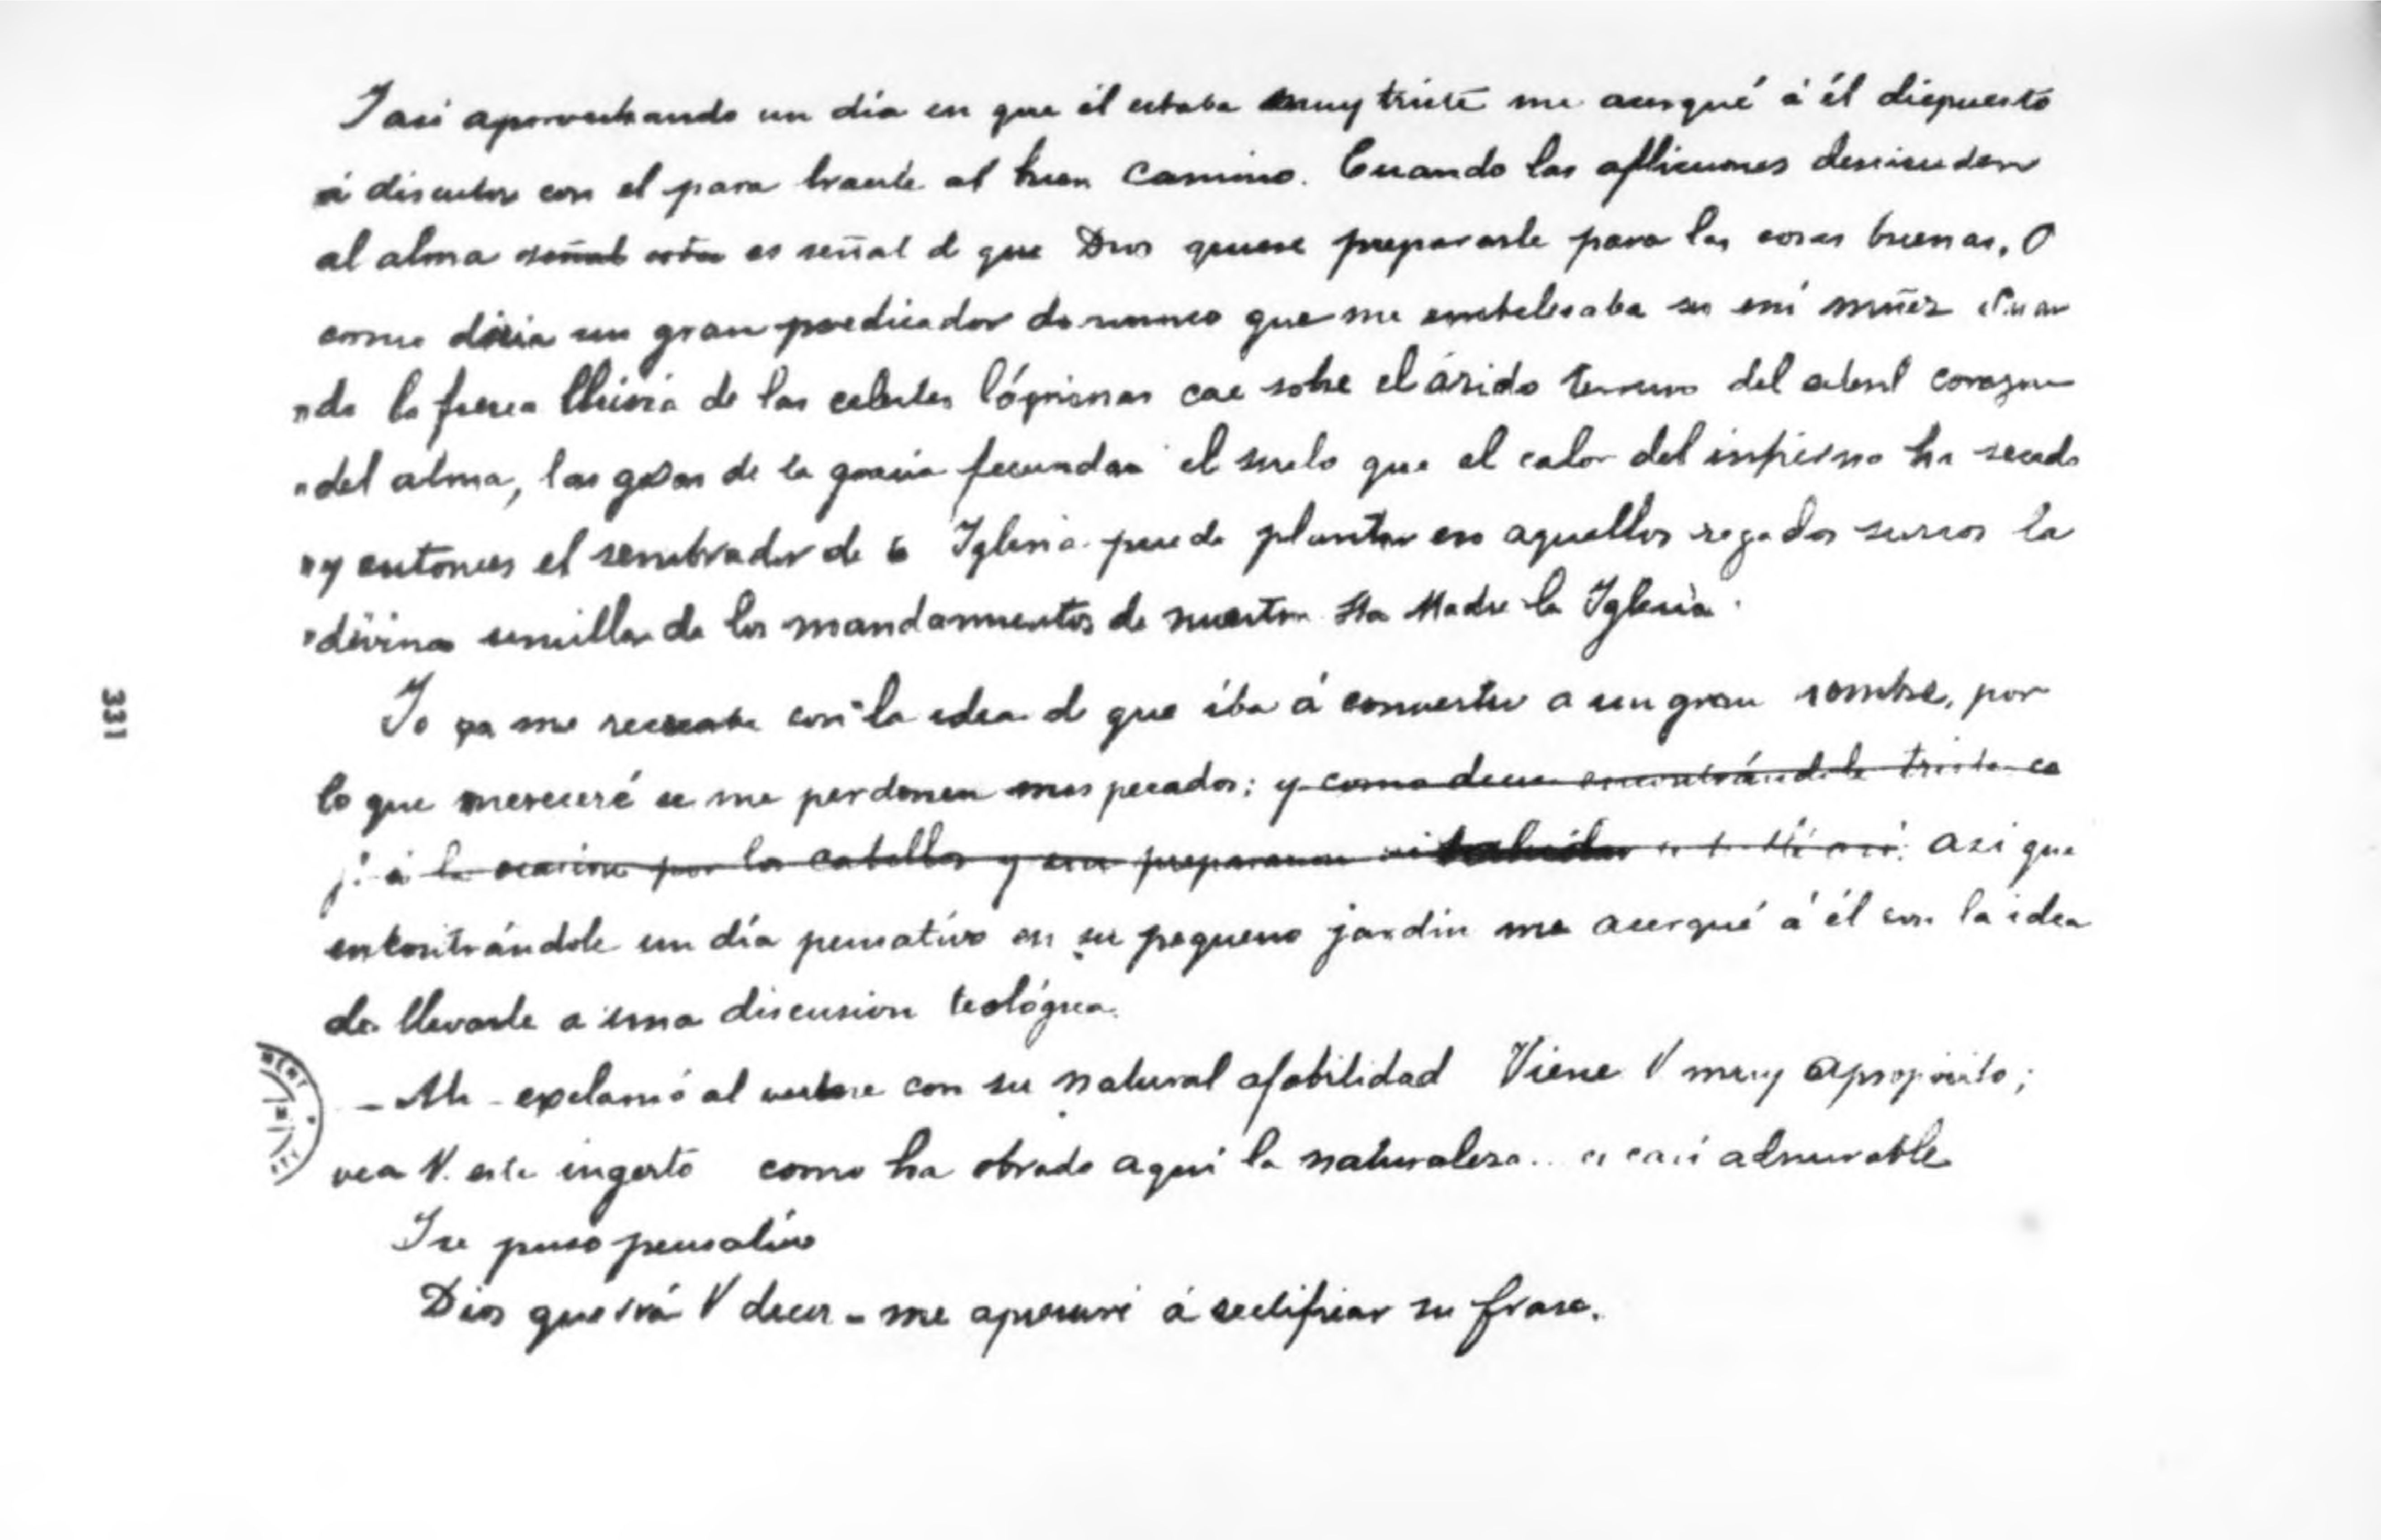 Y asi aprovechando un día en que él estaba muy triste me acerqué á él dispuesto
á discutir con el para traerle al buen camino. Cuando las aflicciones descienden
al alma señal esta es señal d que Dios quiere prepararle para las cosas buenas. O
como diria un gran predicador dominico que me embelesaba en mi niñez «Cuan
"do la fresca lluvia de las celestes lágrimas cae sobre el árido terreno del corazon
"del alma, las gotas de la gracia fecundan el suelo que el calor del infierno ha secado
"y entonces el sembrador de la Iglesia puede plantar en aquellos regados surcos la
"divina semilla de los mandamientos de nuestra Sta Madre la Iglesia.
Yo ya me recreaba con la idea d que iba á convertir a un gran hombre, por
lo que mereceré se me perdonen mis pecados; y como encontrándole triste co
jí á la ocasion por los cabellos y asi que
encontrándole un día pensativo en su pequeno jardin me acerqué á él con la idea
de llevarle a una discusion teológica.
- Ah - exclamó al verme con su natural afabilidad Viene V muy apropósito;
vea V. este ingerto como ha obrado aqui la naturaleza.. es casi admirable
Y se puso pensativo
Dios querrá V decir - me apresuré á rectificar su frase.
331